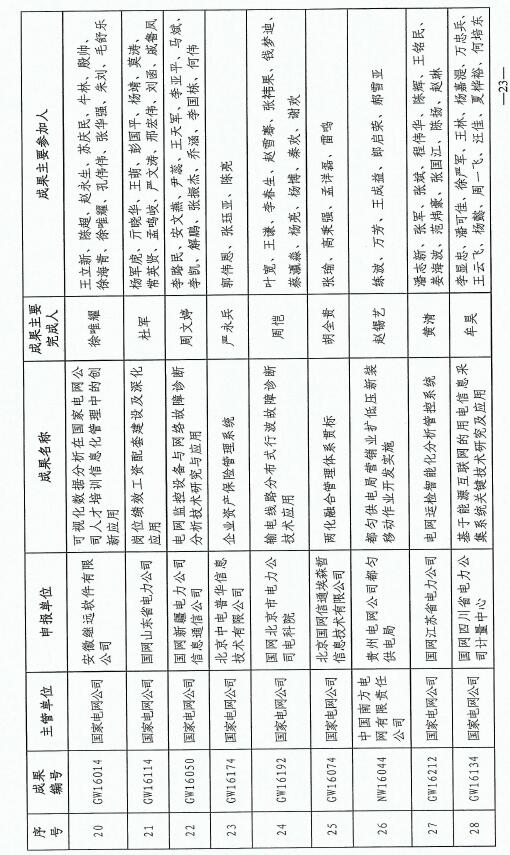 序号 成果编号 主管单位 申报单位 成果名称 成果主要完成人 成果主要参加人
20 GW16014 国家电网公司 安徽继远软件有限公司 可视化数据分析在国家电网公司人才培训信息化管理中的创新应用 徐唯耀 王立新、陈超、赵永生、苏庆民、牛林、殷帅、徐海青、徐唯耀、孔伟伟、张华强、朱刘、毛舒乐
21 GW16114 国家电网公司 国网山东省电力公司 岗位绩效工资配套建设及深化应用 杜军 杨军虎、亓晓华、王萌、彭国平、杨靖、莫涛、常英贤、孟鸣岐、严文涛、邢宏伟、刘函、戚鲁凤
22 GW16050 国家电网公司 国网新疆电力公司信息通信公司 电网监控设备与网络故障诊断分析技术研究与应用 周文婷 李路民、安文燕、尹蕊、王天军、李亚平、马斌、李凯、解鹏、张振杰、乔涵、李国栋、何伟
23 GW16174 国家电网公司 北京中电普华信息技术有限公司 企业资产保险管理系统 严永兵 郭伟恩、张珏亚、陈亮
24 GW16192 国家电网公司 国网北京市电力公司电科院 输电线路分布式行波故障诊断技术应用 周恺 叶宽、王谦、李春生、赵雪骞、张祎果、钱梦迪、蔡瀛淼、杨亮、杨博、秦欢、谢欢
25 GW16074 国家电网公司 北京国网信通埃森哲信息技术有限公司 两化融合管理体系贯标 胡全贵 张瑜、高秉强、孟洋磊、雷鸣
26 NW16044 中国南方电网有限责任公司 贵州电网公司都匀供电局 都匀供电局营销业扩低压新装移动作业开发实施 赵锡艺 练波、万芳、王成益、郎启荣、郝雪亚
27 GW16212 国家电网公司 国网江苏省电力公司 电网运检智能化分析管控系统 黄清 潘志新、张军、张斌、程伟华、陈辉、王铭民、姜海波、范炜豪、张国江、陈扬、赵琳
28 GW16134 国家电网公司 国网四川省电力公司计量中心 基于能源互联网的用电信息采集系统关键技术研究及应用 牟昊 李显忠、潘可佳、徐严军、王林、杨嘉湜、万忠兵、王云飞、杨懿、周一飞、汪佳、夏桦裕、何培东
—23—